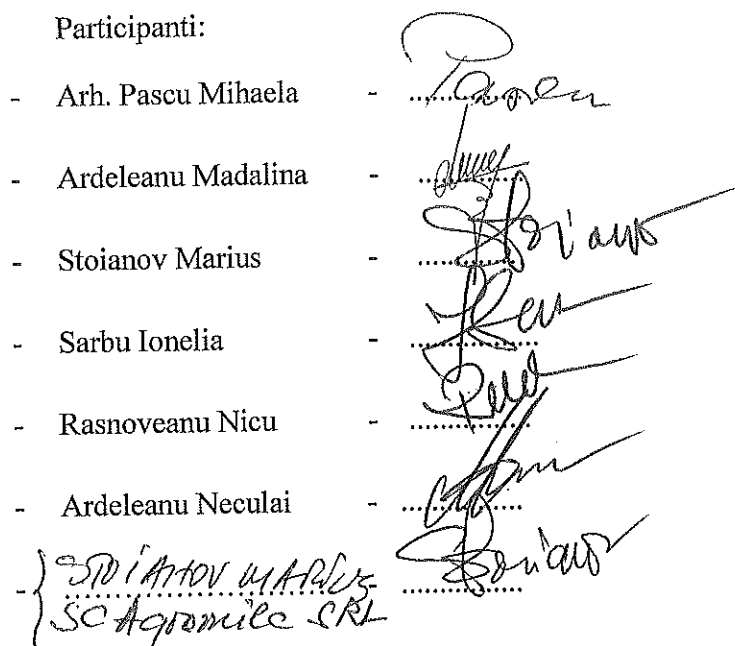 Participanti:
- Arh. Pascu Mihaela - ............
- Ardeleanu Madalina - ............
- Stoianov Marius - ............ Stoianov
- Sarbu Ionelia - ............
- Rasnoveanu Nicu - ............
- Ardeleanu Neculai - ............
- STOIANOV MARIUS - ............ Stoianov
SC Agromilc SRL